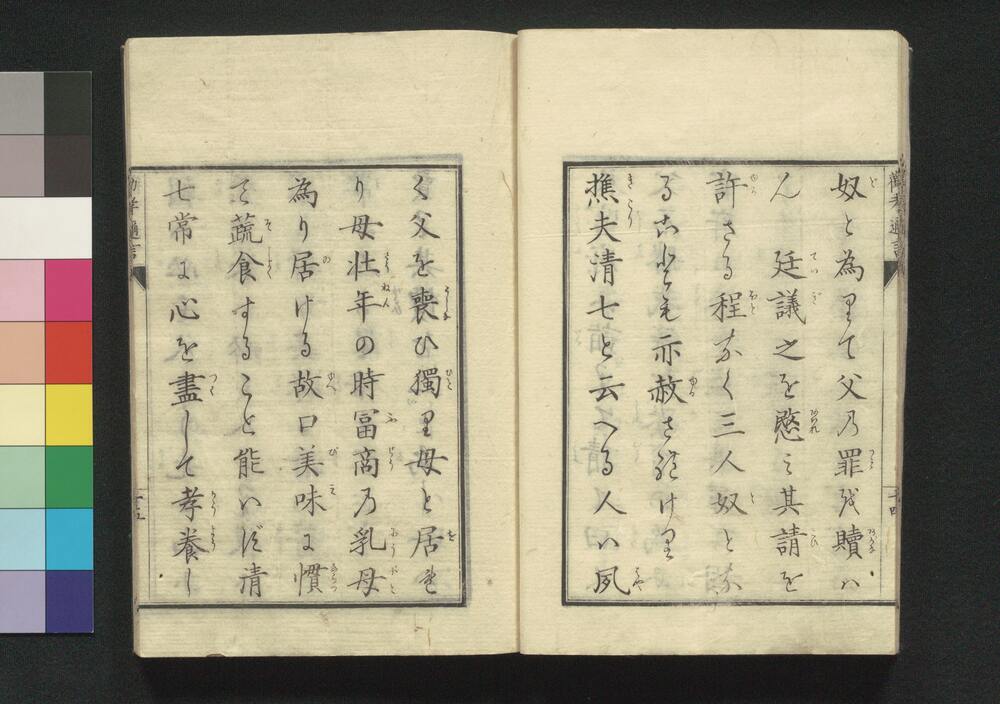 奴と為りて父乃罪を贖ハ
ん　廷議之を愍ミ其請を
許さる程なく三人奴と
るゝ我も亦赦され けり
樵夫清七と云へる人ハ夙
く父を喪ひ獨り母と居
り母壮年の時冨商乃乳母
為り居ける故口美味に慣
て蔬食することと能ハ 清
七常に心を盡して孝養し
勧孝邇言
十四
十五